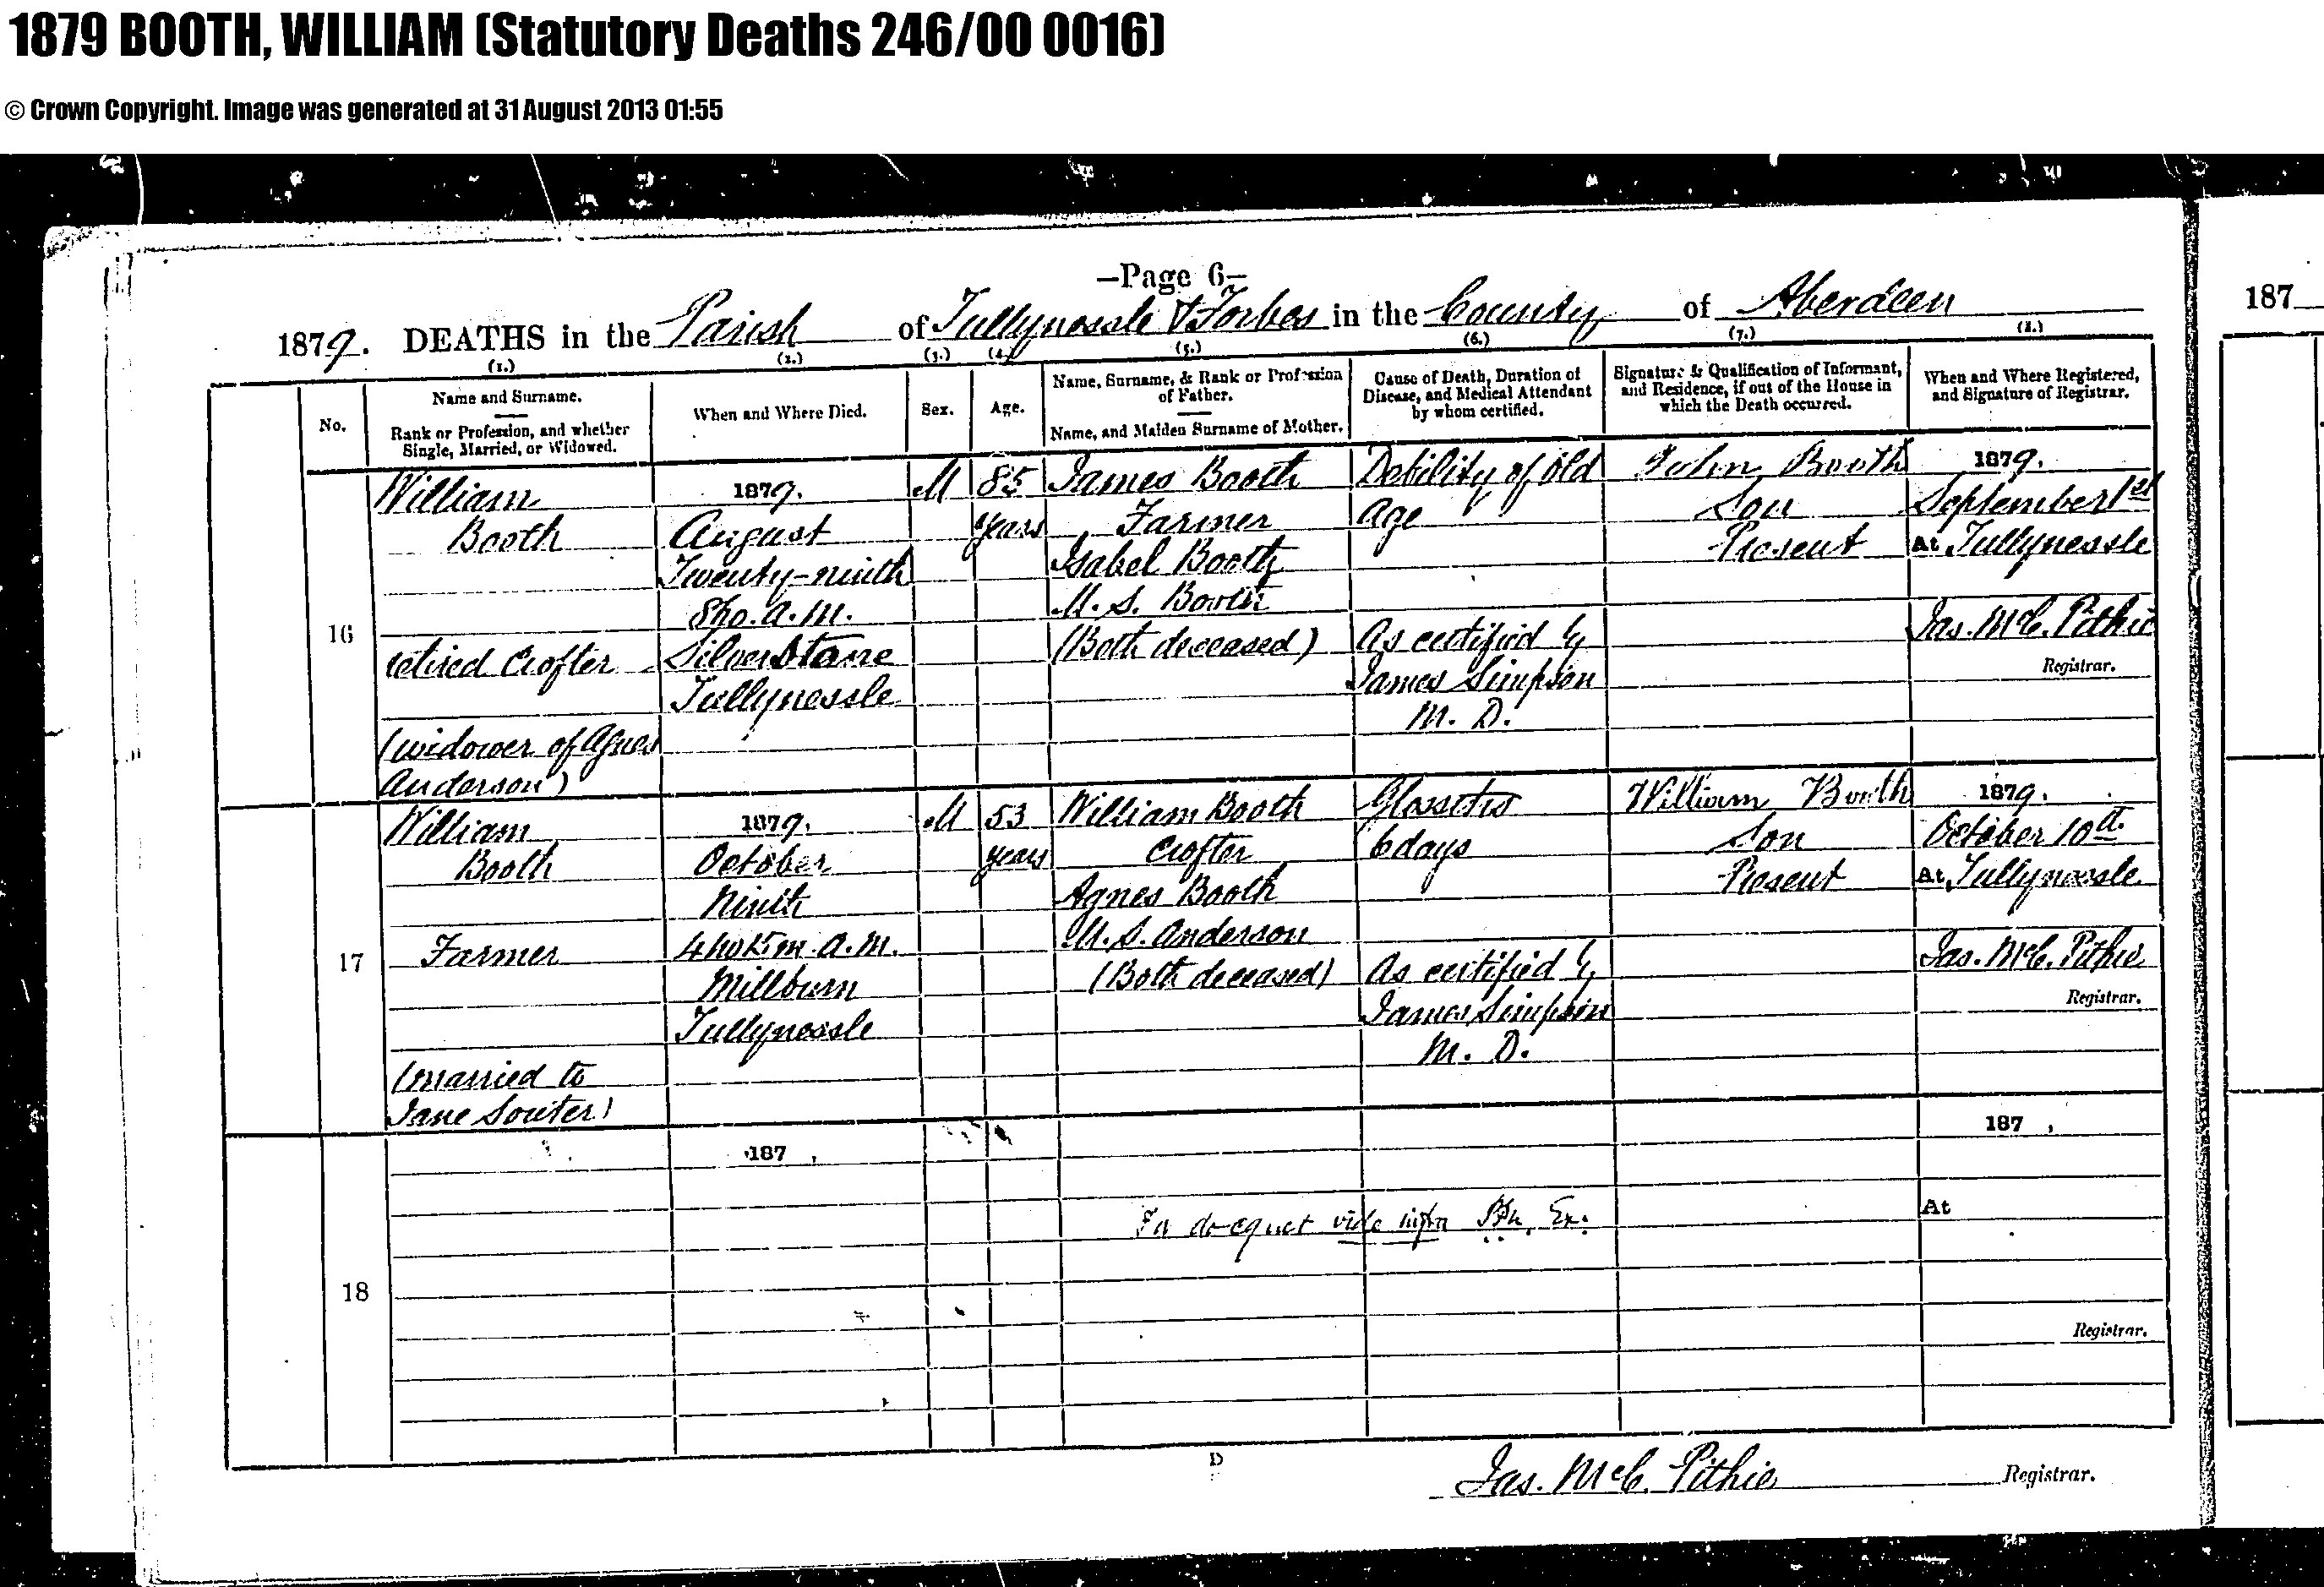 1879 BOOTH, WILLIAM (Statutory Deaths 246/00 0016)
© Crown Copyright. Image was generated at 31 August 2013 01:55
—Page 6—
1879. DEATHS in the Parish of Tullynessle & Forbes in the County of Aberdeen
187
(1.) (2.) (3.) (4.) (5.) (6.) (7.) (8.)
No.
Name and Surname.
Rank or Profession, and whether
Single, Married, or Widowed.
When and Where Died.
Sex.
Age.
Name, Surname, & Rank or Profession
of Father.
Name, and Maiden Surname of Mother.
Cause of Death, Duration of
Disease, and Medical Attendant
by whom certified.
Signature & Qualification of Informant,
and Residence, if out of the House in
which the Death occurred.
When and Where Registered,
and Signature of Registrar.
16
William
Booth
retired Crofter
(widower of Agnes
Anderson)
1879.
August
Twenty-ninth
8ho. a.m.
Silverstane
Tullynessle
M
85
years
James Booth
Farmer
Isabel Booth
M.S. Booth
(Both deceased)
Debility of Old
Age
As certified by
James Simpson
M. D.
John Booth
Son
Present
1879.
September 1st
At Tullynessle
Jas. McC. Pithie
Registrar.
17
William
Booth
Farmer
(married to
Jane Souter)
1879.
October
Ninth
4ho 15m. A.M.
Millburn
Tullynessle
M
53
years
William Booth
Crofter
Agnes Booth
M.S. Anderson
(Both deceased)
Glossitis
6 days
As certified by
James Simpson
M. D.
William Booth
Son
Present
1879.
October 10th
At Tullynessle
Jas. McC. Pithie
Registrar.
18
187 .
187 .
At
vide infra Ex.
Registrar.
D
Jas. McC. Pithie Registrar.